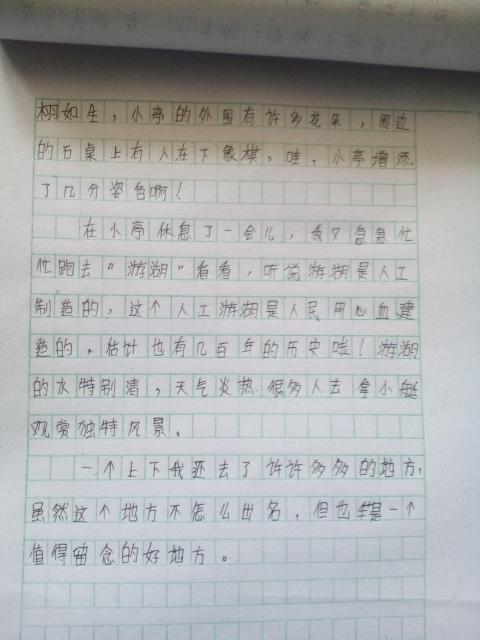 栩如生，小亭的外围有许多花朵，周边
的石桌上有人在下象棋，哇，小亭增添
了几分姿色啊！
在小亭休息了一会儿，我又急急忙
忙跑去"游湖"看看，听说游湖是人工
制造的，这个人工游湖是人民用心血建
造的，估计也有几百年的历史哇！游湖
的水特别清，天气炎热很多人去拿小艇
观赏独特风景。
一个上下我还去了许许多多的地方，
虽然这个地方不怎么出名，但也算是一个
值得留念的好地方。